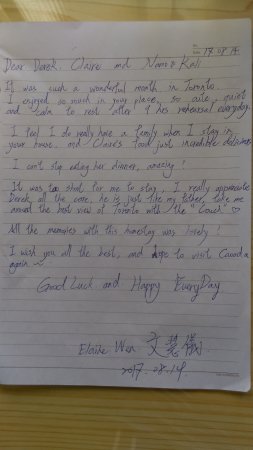 17.08.14
Dear Derek, Claire and Nomi & Kali
It was such a wonderful month in Toronto.
I enjoyed so much in your place, so cute, quiet
and calm to rest after 9 hrs rehearsal everyday.
I feel I do really have a family when I stay in
your house, and Claire's food just incredible delicious
I can't stop eating her dinner, amazing!
It was too short for me to stay, I really appreciate
Derek, all the care, he is just like my father, take me
around the best view of Toronto with the "Couch" ♡
All the memories with this homestay was lovely!
I wish you all the best, and hope to visit Canada
again ~
Good Luck and Happy EveryDay
Elaine Wen 文慧儀
2017.08.14